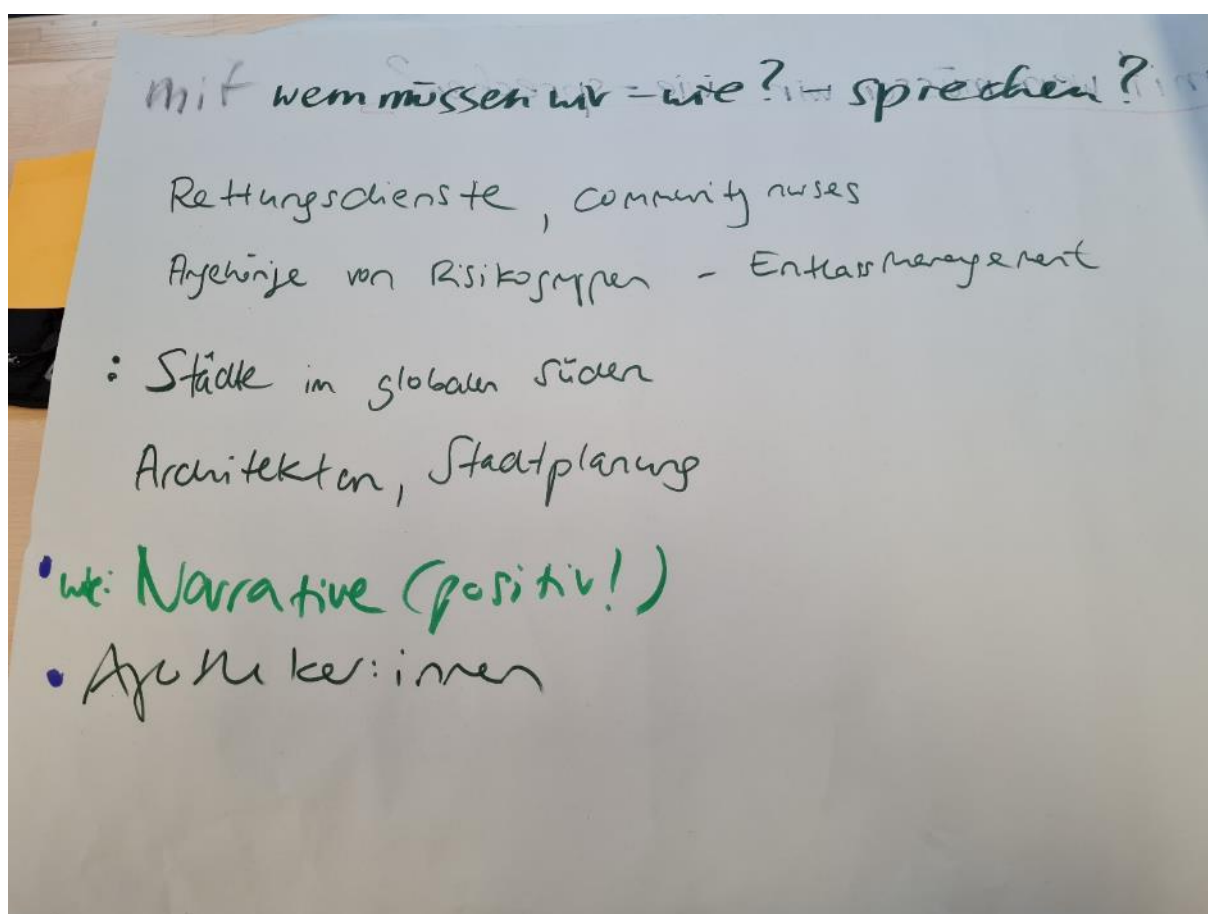 mit wem müssen wir - wie? - sprechen?
Rettungsdienste, community nurses
Angehörige von Risikogruppen - Entlassmanagement
: Städte im globalen Süden
Architekten, Stadtplanung
• wie: Narrative (positiv!)
• Apotheker:innen